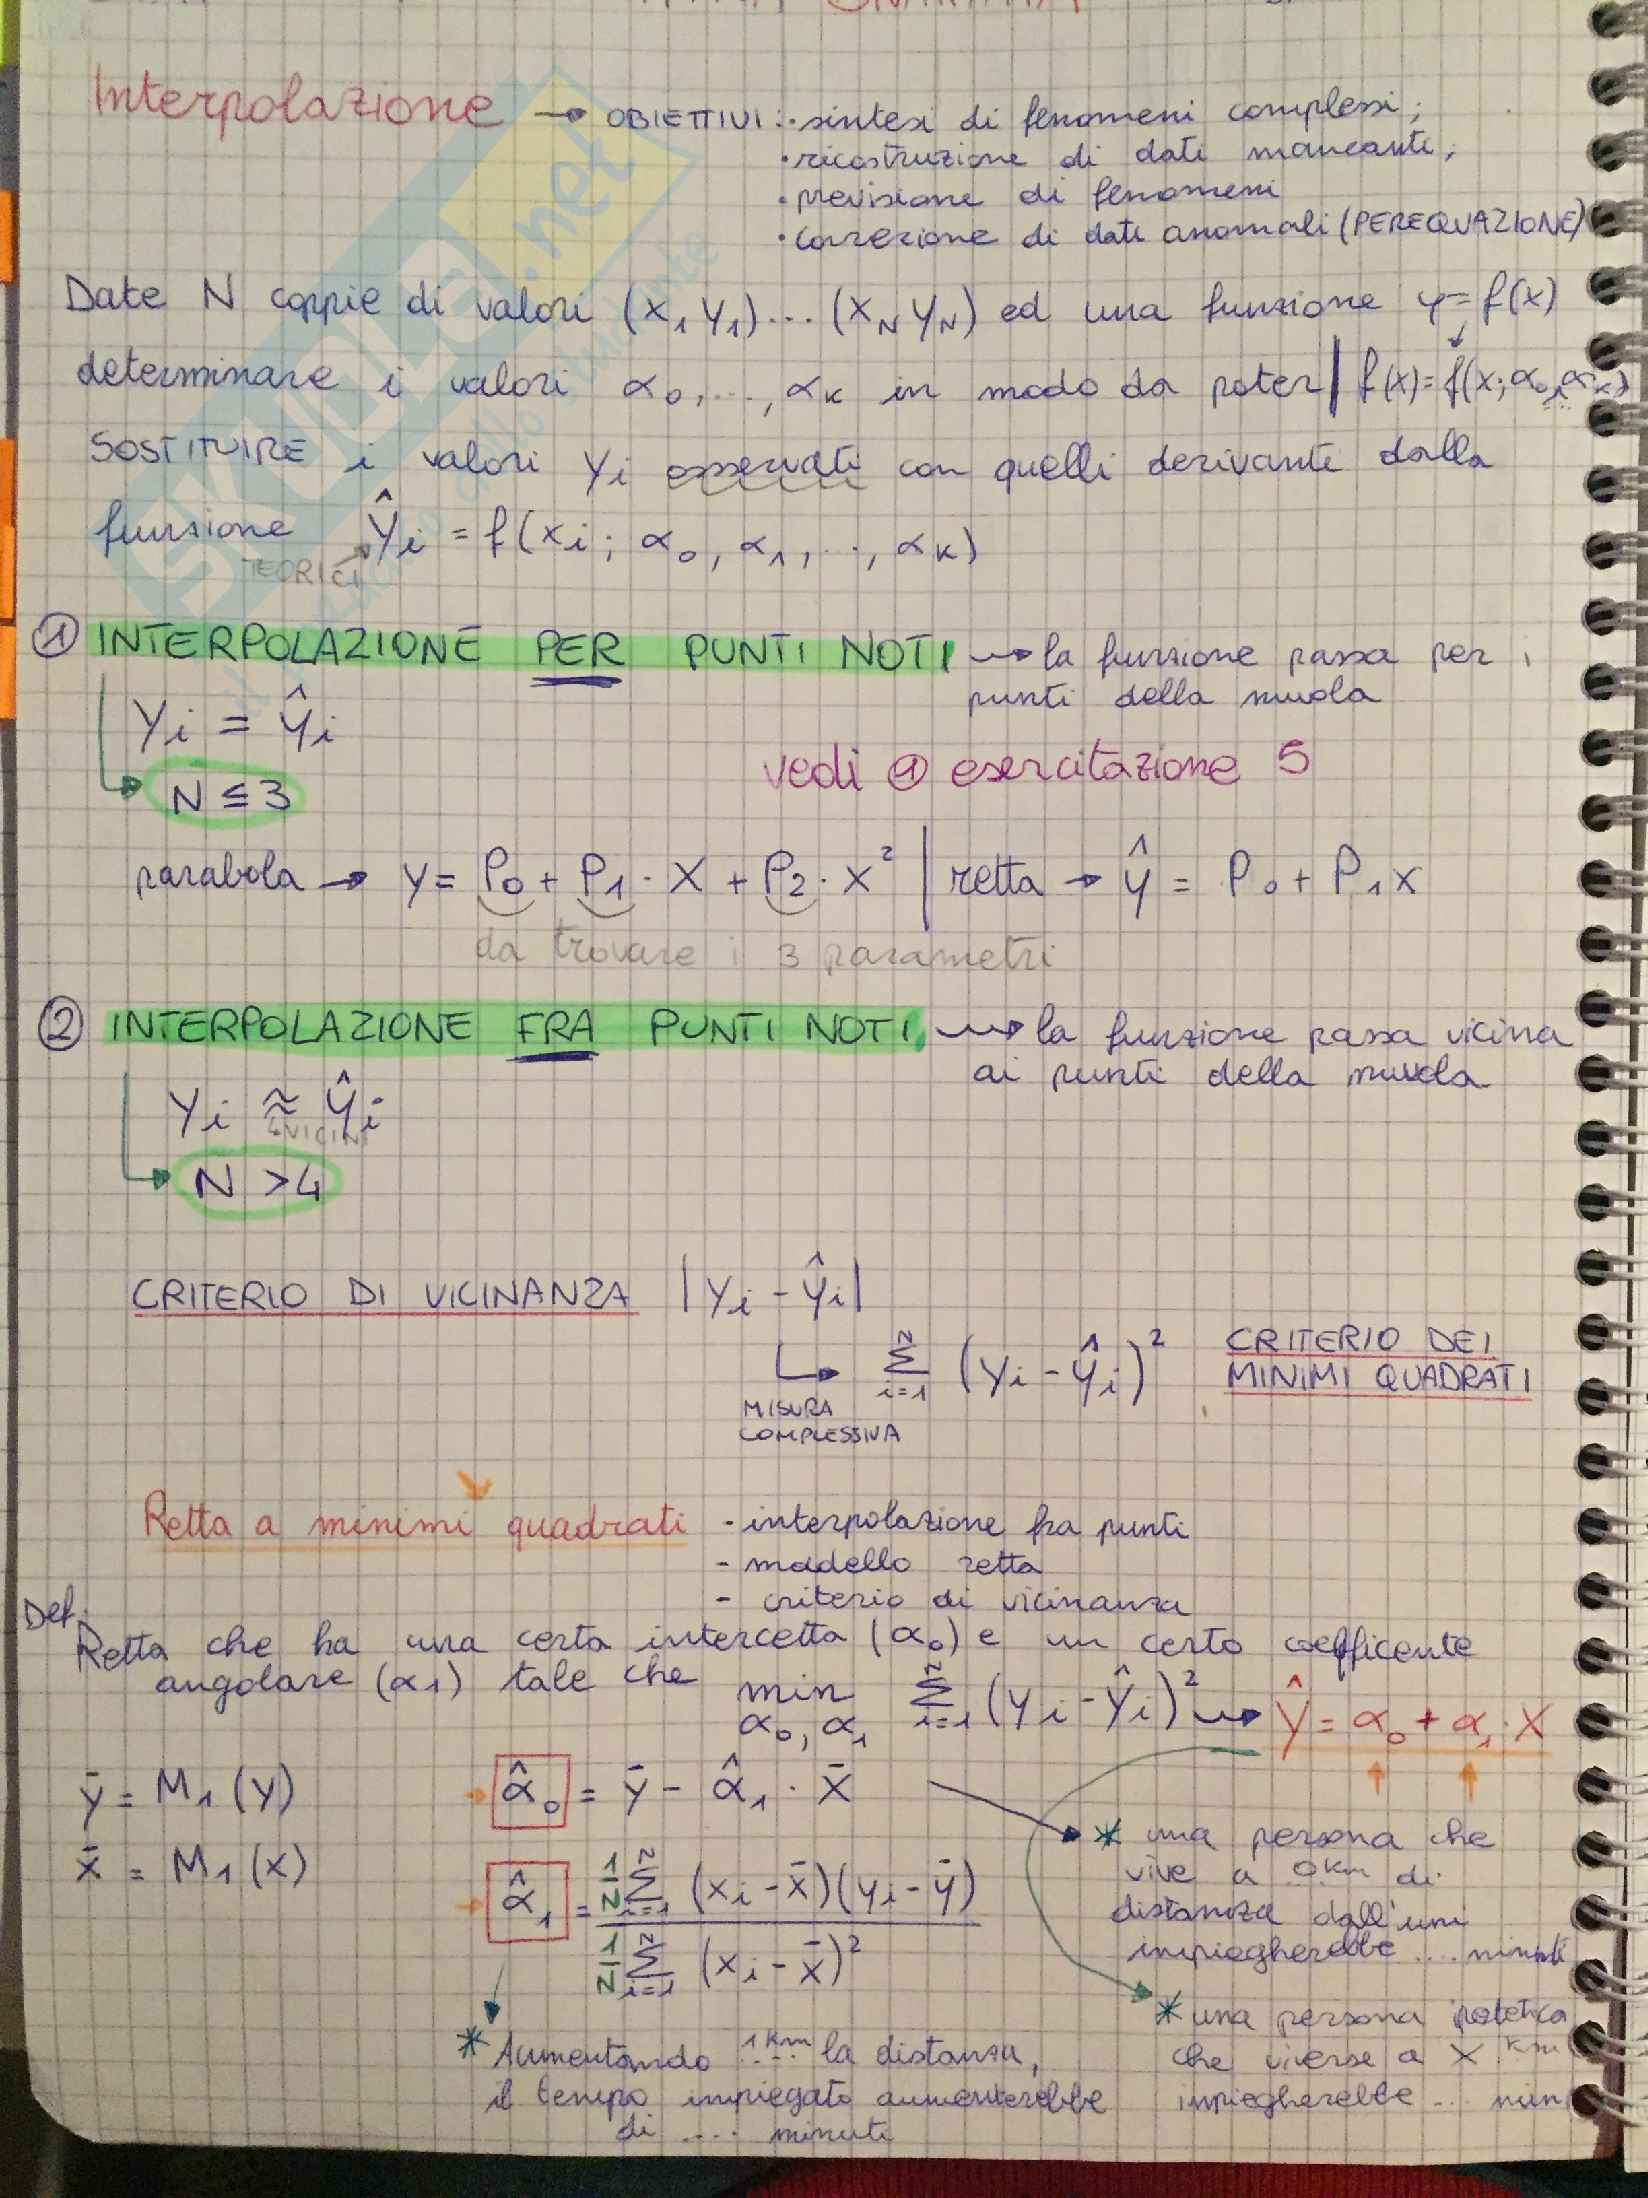 Interpolazione → OBIETTIVI: • sintesi di fenomeni complessi;
• ricostruzione di dati mancanti;
• previsione di fenomeni
• correzione di dati anomali (PEREQUAZIONE)
Date N coppie di valori (x₁ y₁)... (x_N y_N) ed una funzione y = f(x)
determinare i valori α₀,...,α_K in modo da poter | f(x)=f(x; α₀,...,α_K)
SOSTITUIRE i valori y_i osservati con quelli derivanti dalla
funzione ŷ_i = f(x_i; α₀, α₁, ..., α_K)
TEORICI
① INTERPOLAZIONE PER PUNTI NOTI → la funzione passa per i
punti della nuvola
y_i = ŷ_i
vedi ① esercitazione 5
N ≤ 3
parabola → y = P₀ + P₁ · x + P₂ · x² | retta → ŷ = P₀ + P₁x
da trovare i 3 parametri
② INTERPOLAZIONE FRA PUNTI NOTI → la funzione passa vicina
ai punti della nuvola
y_i ≈ ŷ_i
VICINI
N > 4
CRITERIO DI VICINANZA |y_i - ŷ_i|
↳ Σ_{i=1}^{N} (y_i - ŷ_i)² CRITERIO DEI
MINIMI QUADRATI
MISURA
COMPLESSIVA
Retta a minimi quadrati - interpolazione fra punti
- modello retta
- criterio di vicinanza
Def.
Retta che ha una certa intercetta (α₀) e un certo coefficente
angolare (α₁) tale che min_{α₀, α₁} Σ_{i=1}^{N} (y_i - ŷ_i)² → ŷ = α₀ + α₁ · x
ȳ = M₁(y)
α̂₀ = ȳ - α̂₁ · x̄
x̄ = M₁(x)
α̂₁ = 1/N Σ_{i=1}^{N} (x_i - x̄)(y_i - ȳ) / 1/N Σ_{i=1}^{N} (x_i - x̄)²
* una persona che
vive a 0 km di
distanza dall'uni
impiegherebbe .... minuti
* una persona ipotetica
che vivesse a x km
impiegherebbe ... min
* Aumentando 1 km la distanza,
il tempo impiegato aumenterebbe
di .... minuti
SKUOLA.net